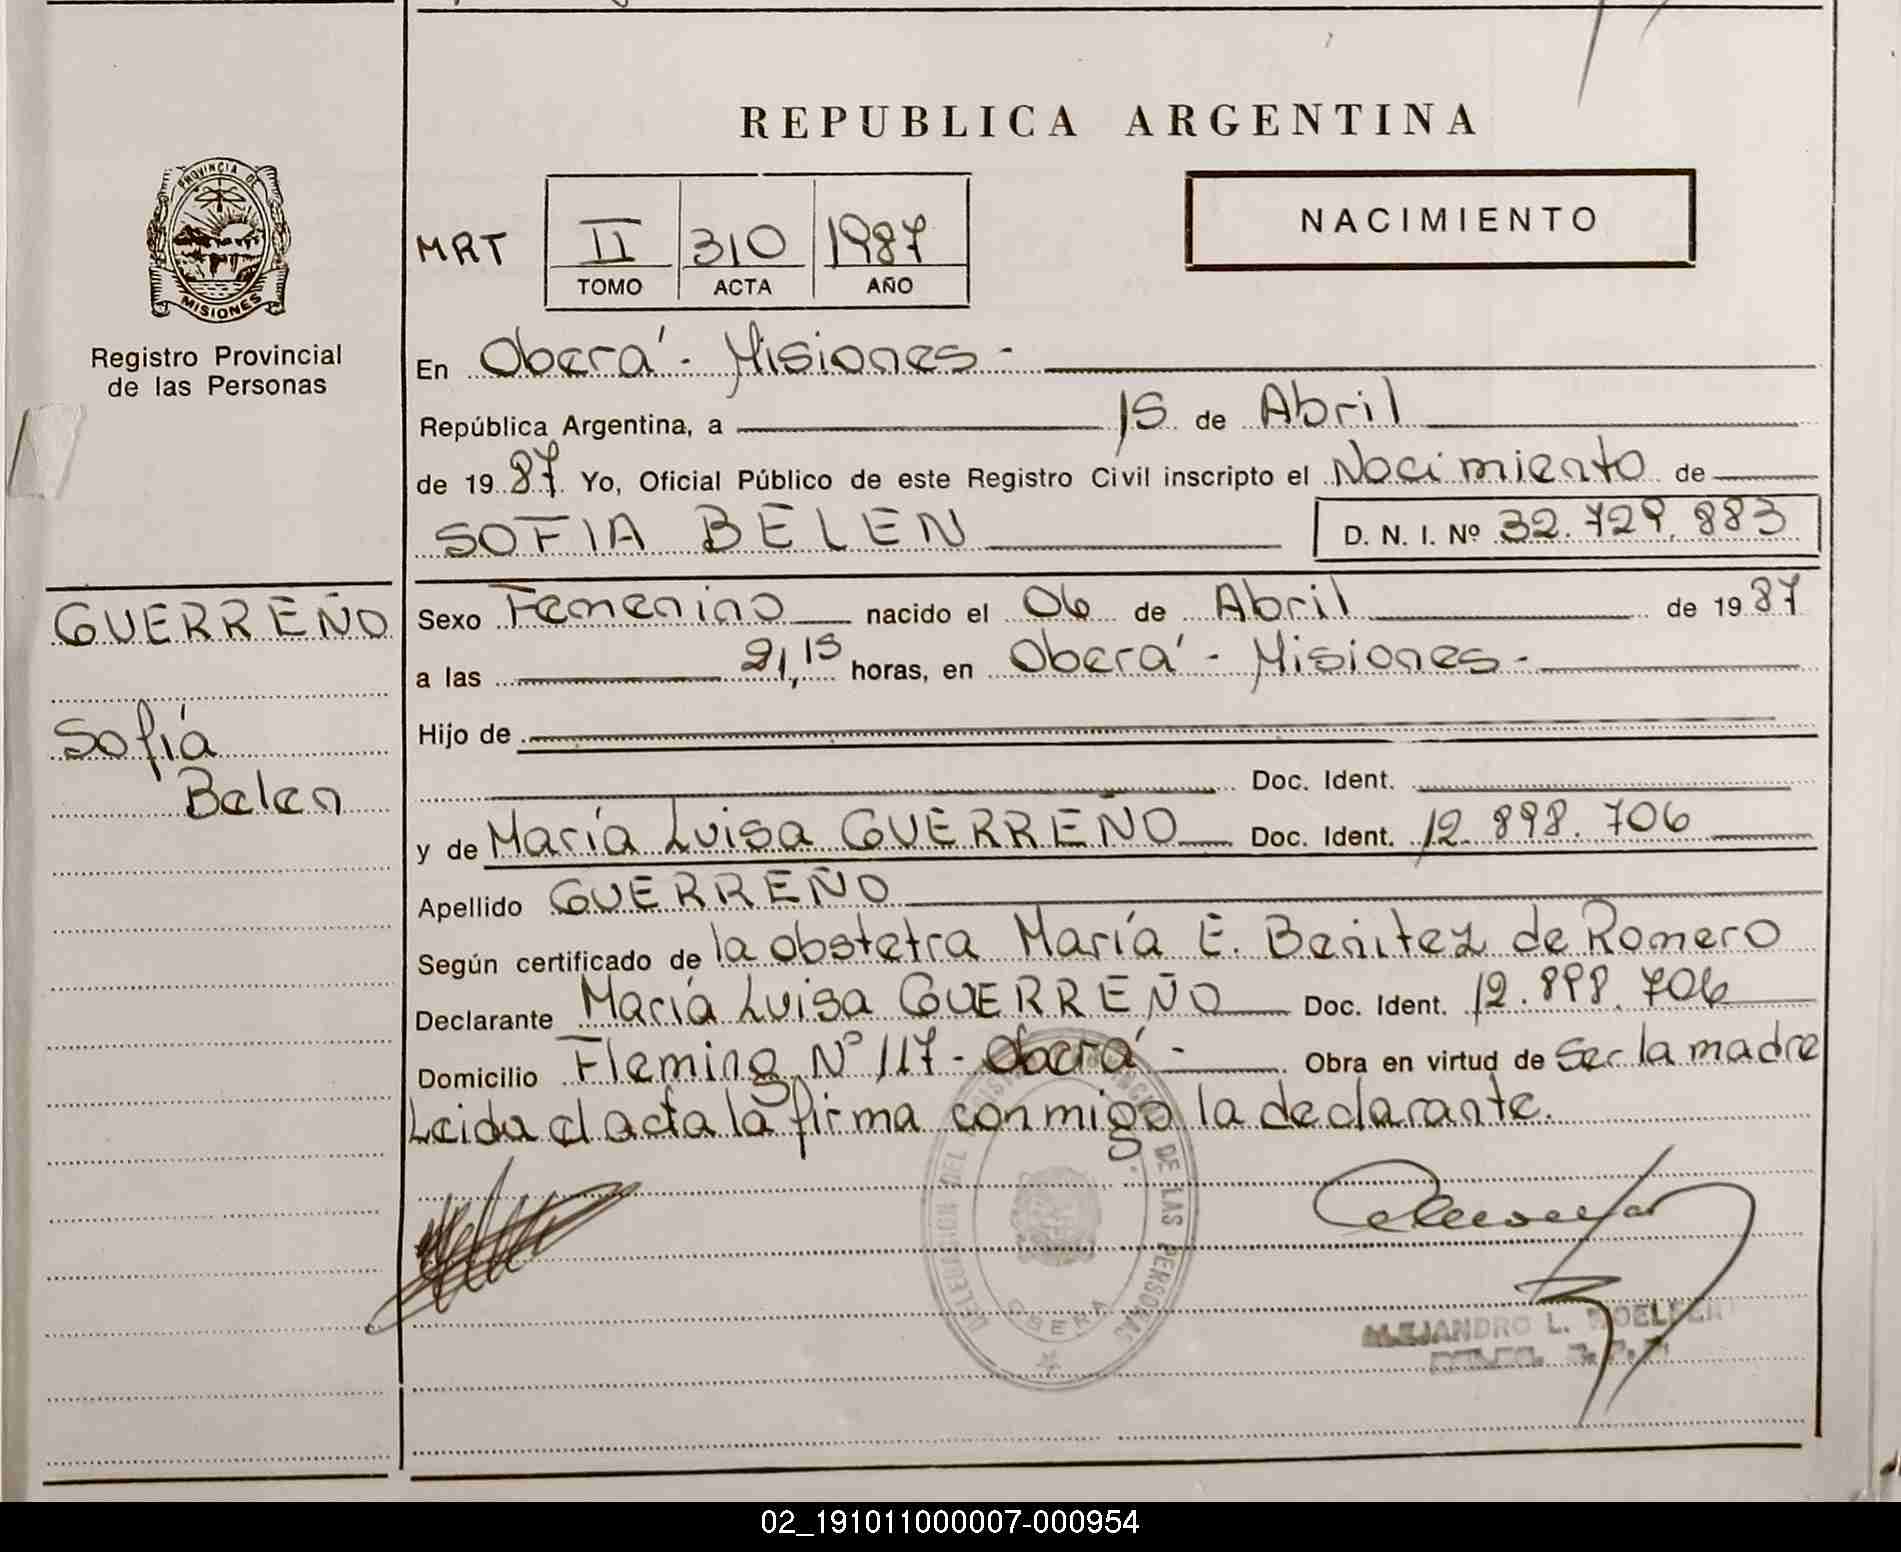 REPUBLICA ARGENTINA
PROVINCIA DE
MISIONES
Registro Provincial
de las Personas
MRT
II 310 1987
TOMO ACTA AÑO
NACIMIENTO
En Oberá - Misiones -
República Argentina, a 15 de Abril
de 1987 Yo, Oficial Público de este Registro Civil inscripto el Nacimiento de
SOFIA BELEN D. N. I. Nº 32.729.883
GUERREÑO
Sofía
Belen
Sexo Femenino nacido el 06 de Abril de 1987
a las 21,15 horas, en Oberá - Misiones -
Hijo de
Doc. Ident.
y de María Luisa GUERREÑO Doc. Ident. 12.898.706
Apellido GUERREÑO
Según certificado de la obstetra María E. Benitez de Romero
Declarante María Luisa GUERREÑO Doc. Ident. 12.898.706
Domicilio Fleming Nº 117 - Oberá - Obra en virtud de ser la madre
Leida el acta la firma conmigo la declarante.
DELEGACIÓN DEL REGISTRO PROVINCIAL DE LAS PERSONAS
OBERA
ALEJANDRO L.
02_191011000007-000954